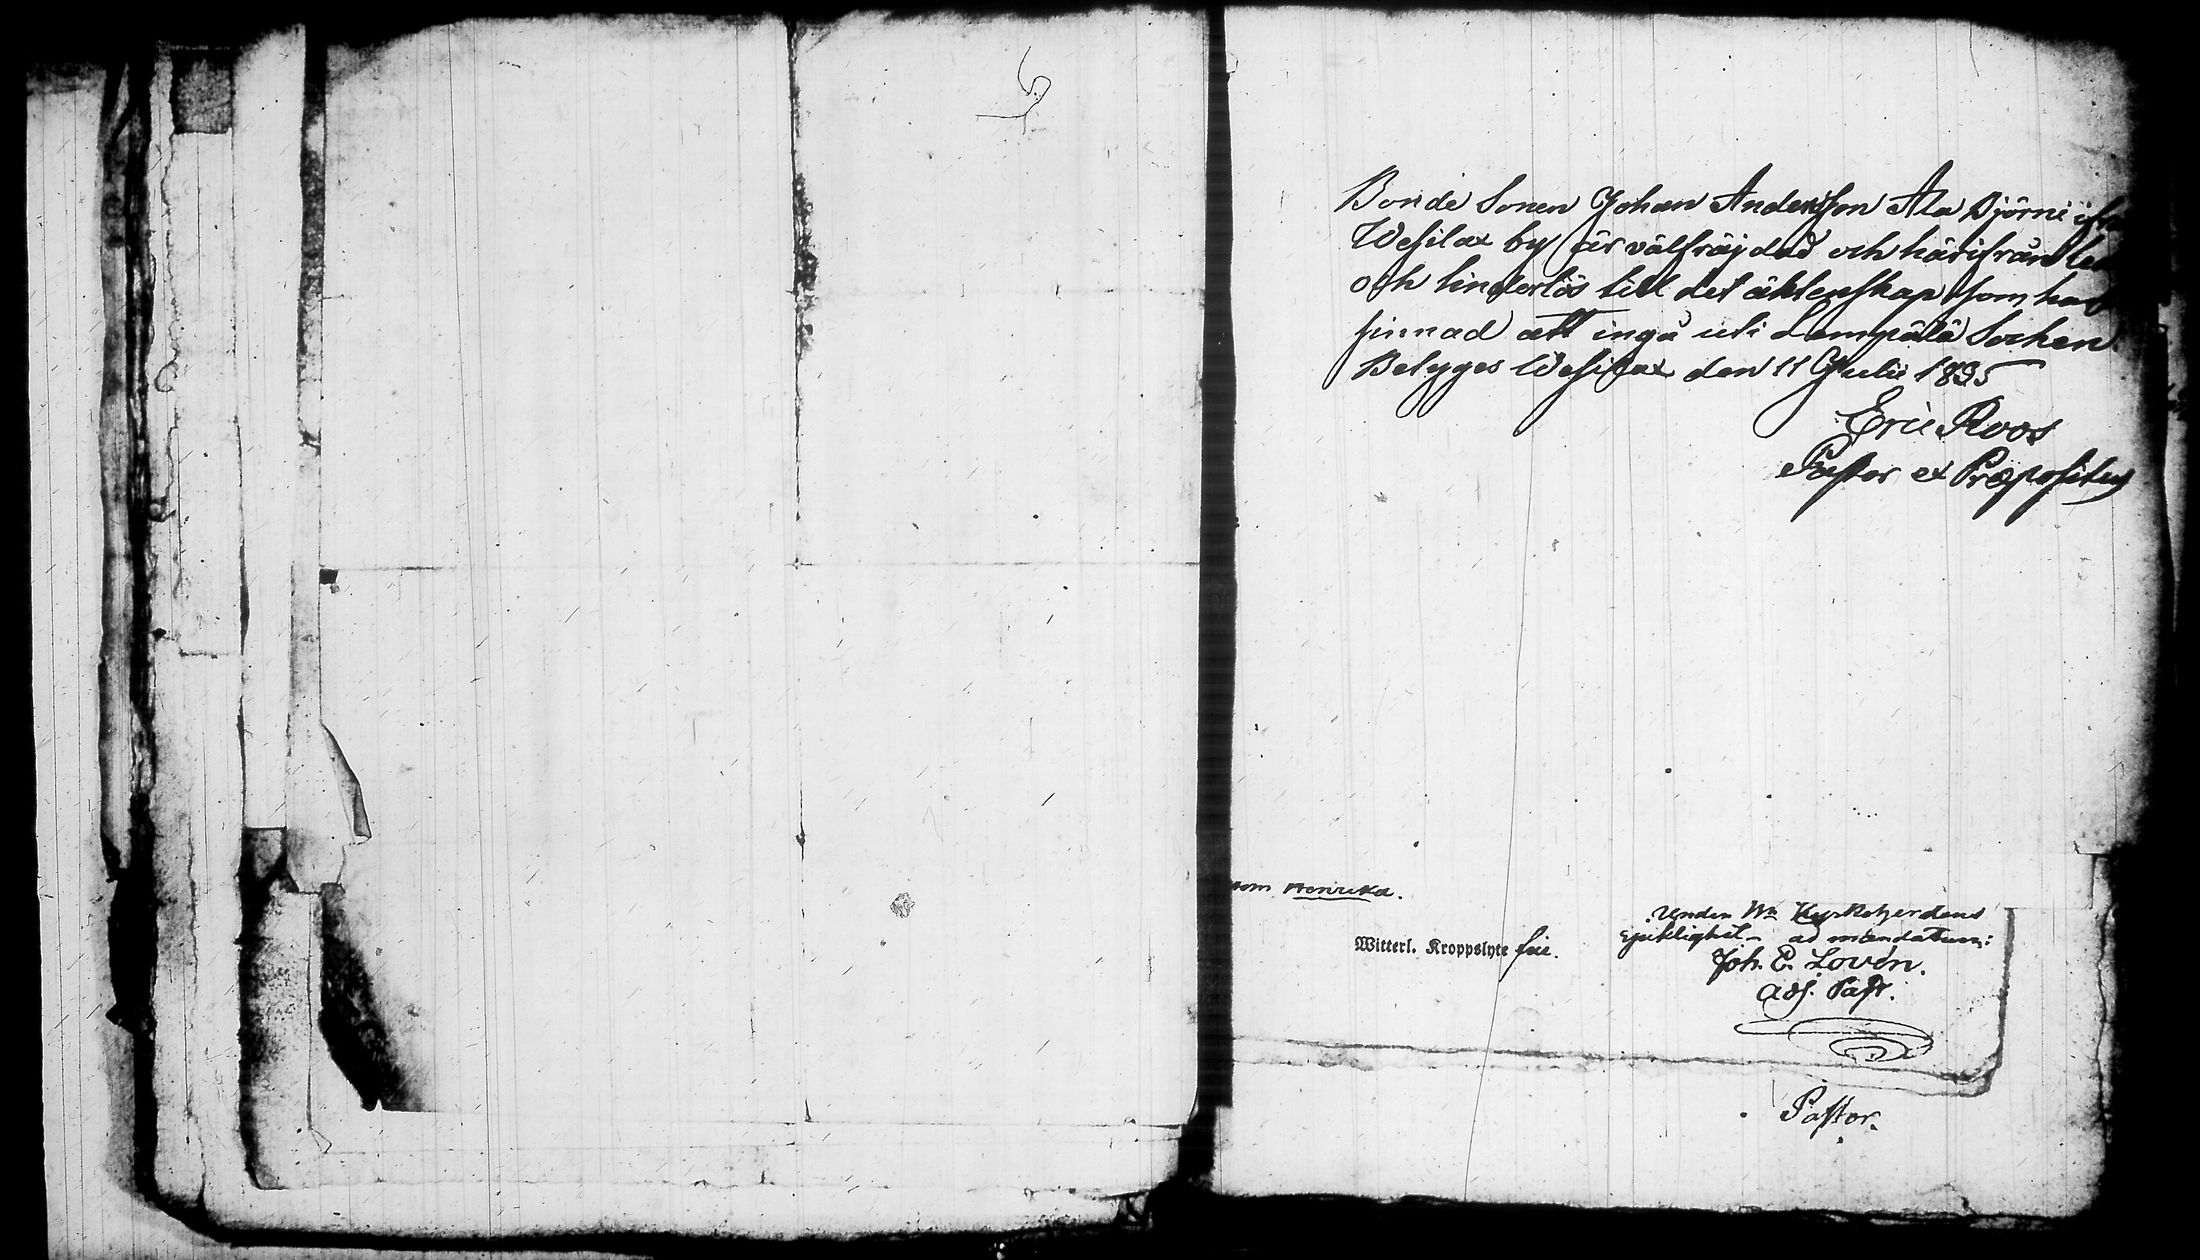 Bonde Sonen Johan Andersson Ala Björni ifrån
Wesilax by är välfräjdad och härifrån led
och hinderlös till det äktenskap som han
sinnad att ingå uti Lempälä Socken.
Betyges Wesilax den 11 Julii 1835
Eric Roos
Pastor et Præpositus
som Henrika.
Under Hr Kyrkoherdens
Witterl. Kroppslyte fri.
sjuklighet - ad mandatum:
Joh. E. Lovén.
adj. Past.
Pastor.